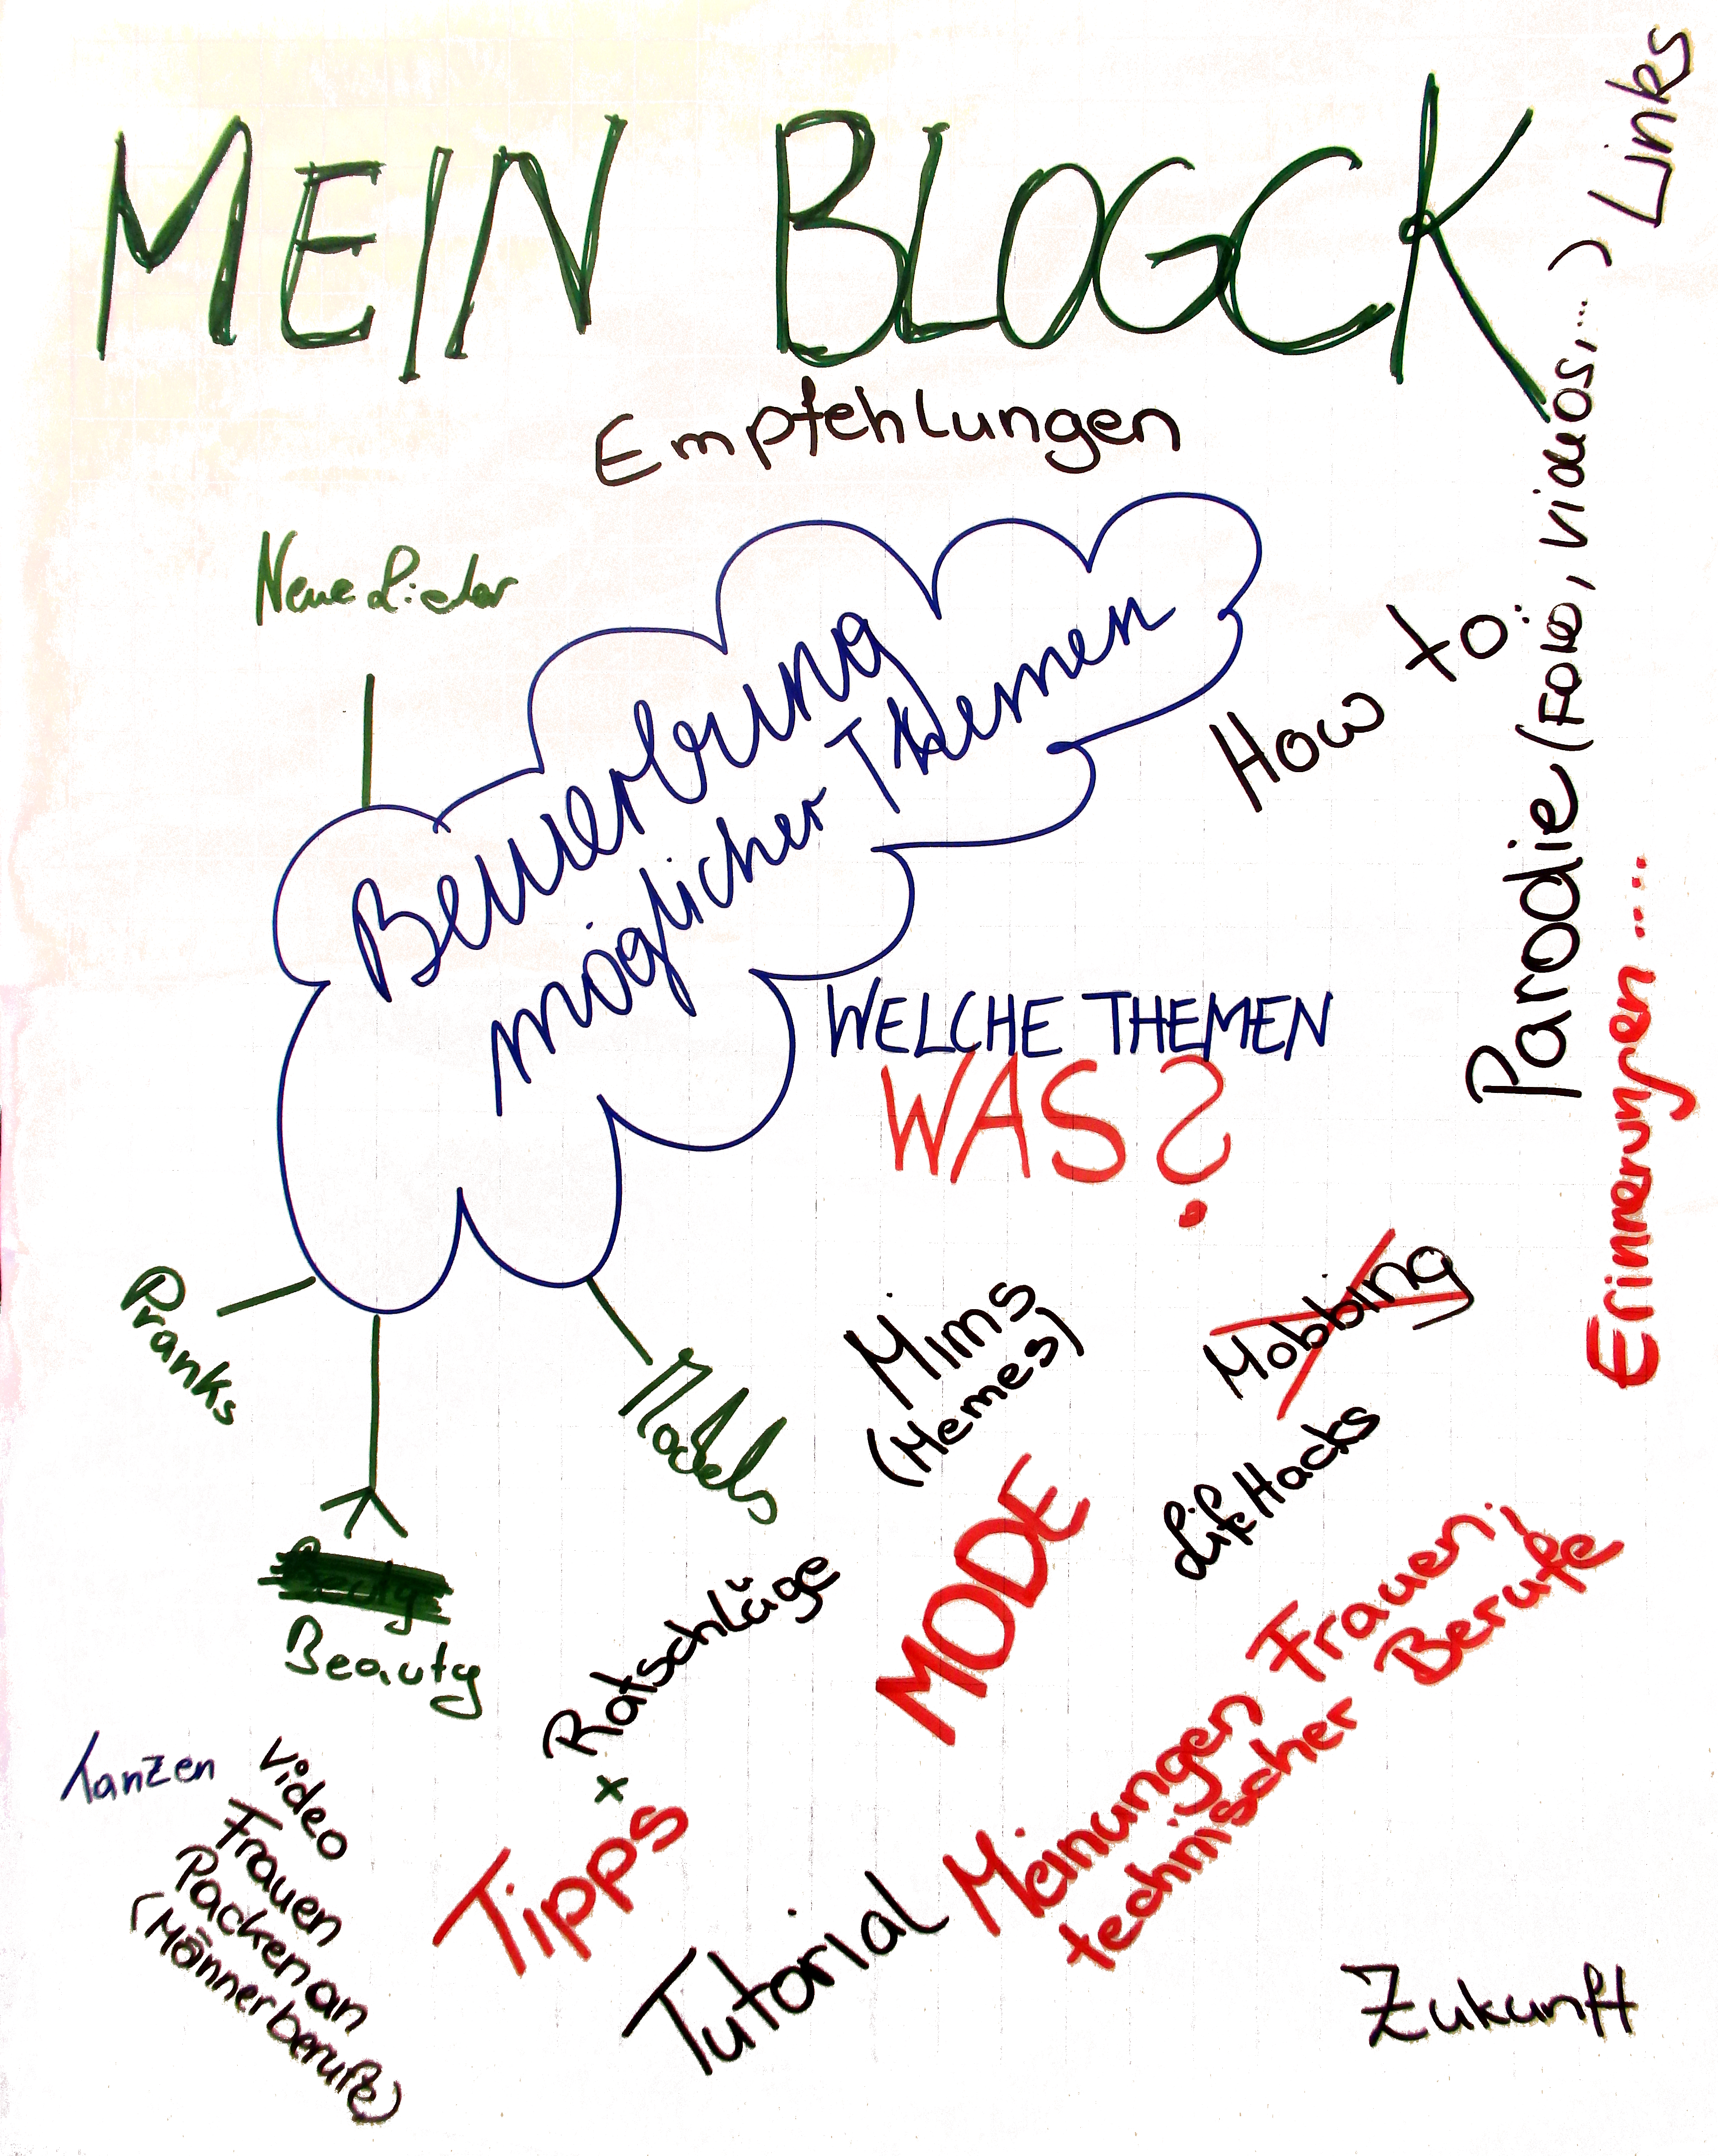 MEIN BLOGCK
Links
Empfehlungen
Neue Lieder
Bewerbung
möglicher Themen
How to
Parodie (Foto, Videos, ...)
WELCHE THEMEN
WAS?
Erinnerungen ....
Pranks
Models
Mims
(Memes)
Mobbing
LifeHacks
Beauty
MODE
Ratschläge
x
Tipps
Tanzen
Video
Frauen
Packen an
(Männerberufe)
Tutorial
Meinungen Frauen,
technischer Berufe
Zukunft